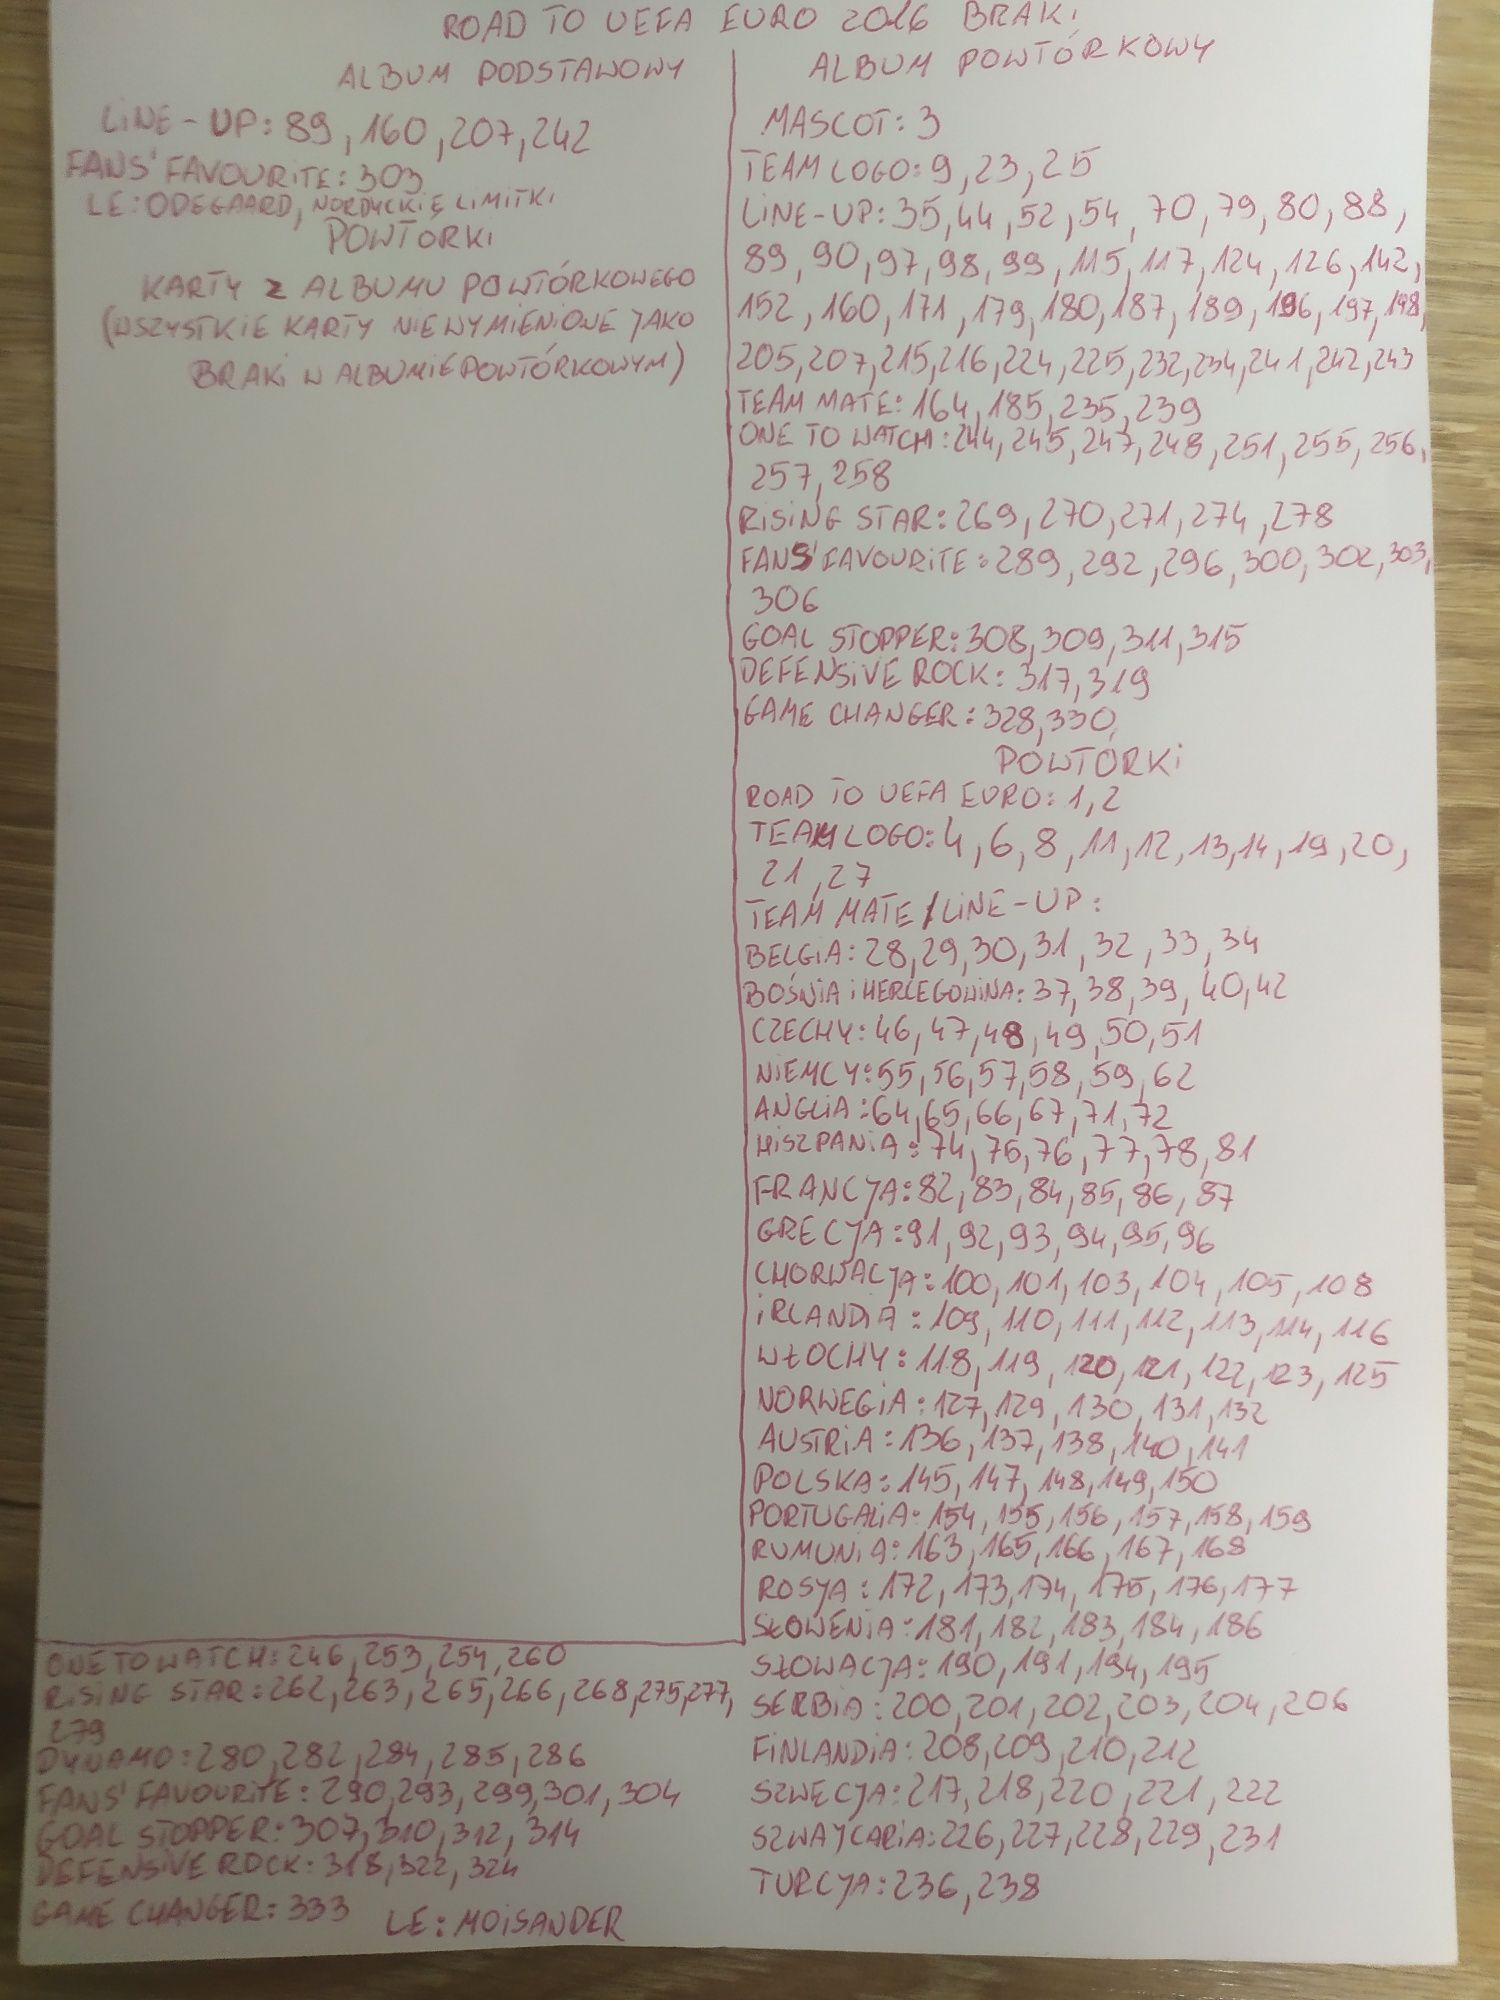 ROAD TO UEFA EURO 2016 BRAKI
ALBUM PODSTAWOWY
LINE-UP: 89, 160, 207, 242
FANS' FAVOURITE: 303
LE: ODEGAARD, NORDYCKIE LIMITKI
POWTÓRKI
KARTY Z ALBUMU POWTÓRKOWEGO
(WSZYSTKIE KARTY NIEWYMIENIONE JAKO
BRAKI W ALBUMIE POWTÓRKOWYM)
ALBUM POWTÓRKOWY
MASCOT: 3
TEAM LOGO: 9, 23, 25
LINE-UP: 35, 44, 52, 54, 70, 79, 80, 88,
89, 90, 97, 98, 99, 115, 117, 124, 126, 142,
152, 160, 171, 179, 180, 187, 189, 196, 197, 198,
205, 207, 215, 216, 224, 225, 232, 234, 241, 242, 243
TEAM MATE: 164, 185, 235, 239
ONE TO WATCH: 244, 245, 247, 248, 251, 255, 256,
257, 258
RISING STAR: 269, 270, 271, 274, 278
FANS' FAVOURITE: 289, 292, 296, 300, 302, 303,
306
GOAL STOPPER: 308, 309, 311, 315
DEFENSIVE ROCK: 317, 319
GAME CHANGER: 328, 330
POWTÓRKI
ROAD TO UEFA EURO: 1, 2
TEAM LOGO: 4, 6, 8, 11, 12, 13, 14, 19, 20,
21, 27
TEAM MATE / LINE-UP:
BELGIA: 28, 29, 30, 31, 32, 33, 34
BOŚNIA I HERCEGOWINA: 37, 38, 39, 40, 42
CZECHY: 46, 47, 48, 49, 50, 51
NIEMCY: 55, 56, 57, 58, 59, 62
ANGLIA: 64, 65, 66, 67, 71, 72
HISZPANIA: 74, 75, 76, 77, 78, 81
FRANCJA: 82, 83, 84, 85, 86, 87
GRECJA: 91, 92, 93, 94, 95, 96
CHORWACJA: 100, 101, 103, 104, 105, 108
IRLANDIA: 109, 110, 111, 112, 113, 114, 116
WŁOCHY: 118, 119, 120, 121, 122, 123, 125
NORWEGIA: 127, 129, 130, 131, 132
AUSTRIA: 136, 137, 138, 140, 141
POLSKA: 145, 147, 148, 149, 150
PORTUGALIA: 154, 155, 156, 157, 158, 159
RUMUNIA: 163, 165, 166, 167, 168
ROSJA: 172, 173, 174, 175, 176, 177
SŁOWENIA: 181, 182, 183, 184, 186
SŁOWACJA: 190, 191, 194, 195
SERBIA: 200, 201, 202, 203, 204, 206
FINLANDIA: 208, 209, 210, 212
SZWECJA: 217, 218, 220, 221, 222
SZWAJCARIA: 226, 227, 228, 229, 231
TURCJA: 236, 238
ONE TO WATCH: 246, 253, 254, 260
RISING STAR: 262, 263, 265, 266, 268, 275, 277,
279
DYNAMO: 280, 282, 284, 285, 286
FANS' FAVOURITE: 290, 293, 299, 301, 304
GOAL STOPPER: 307, 310, 312, 314
DEFENSIVE ROCK: 318, 322, 324
GAME CHANGER: 333
LE: MOISANDER